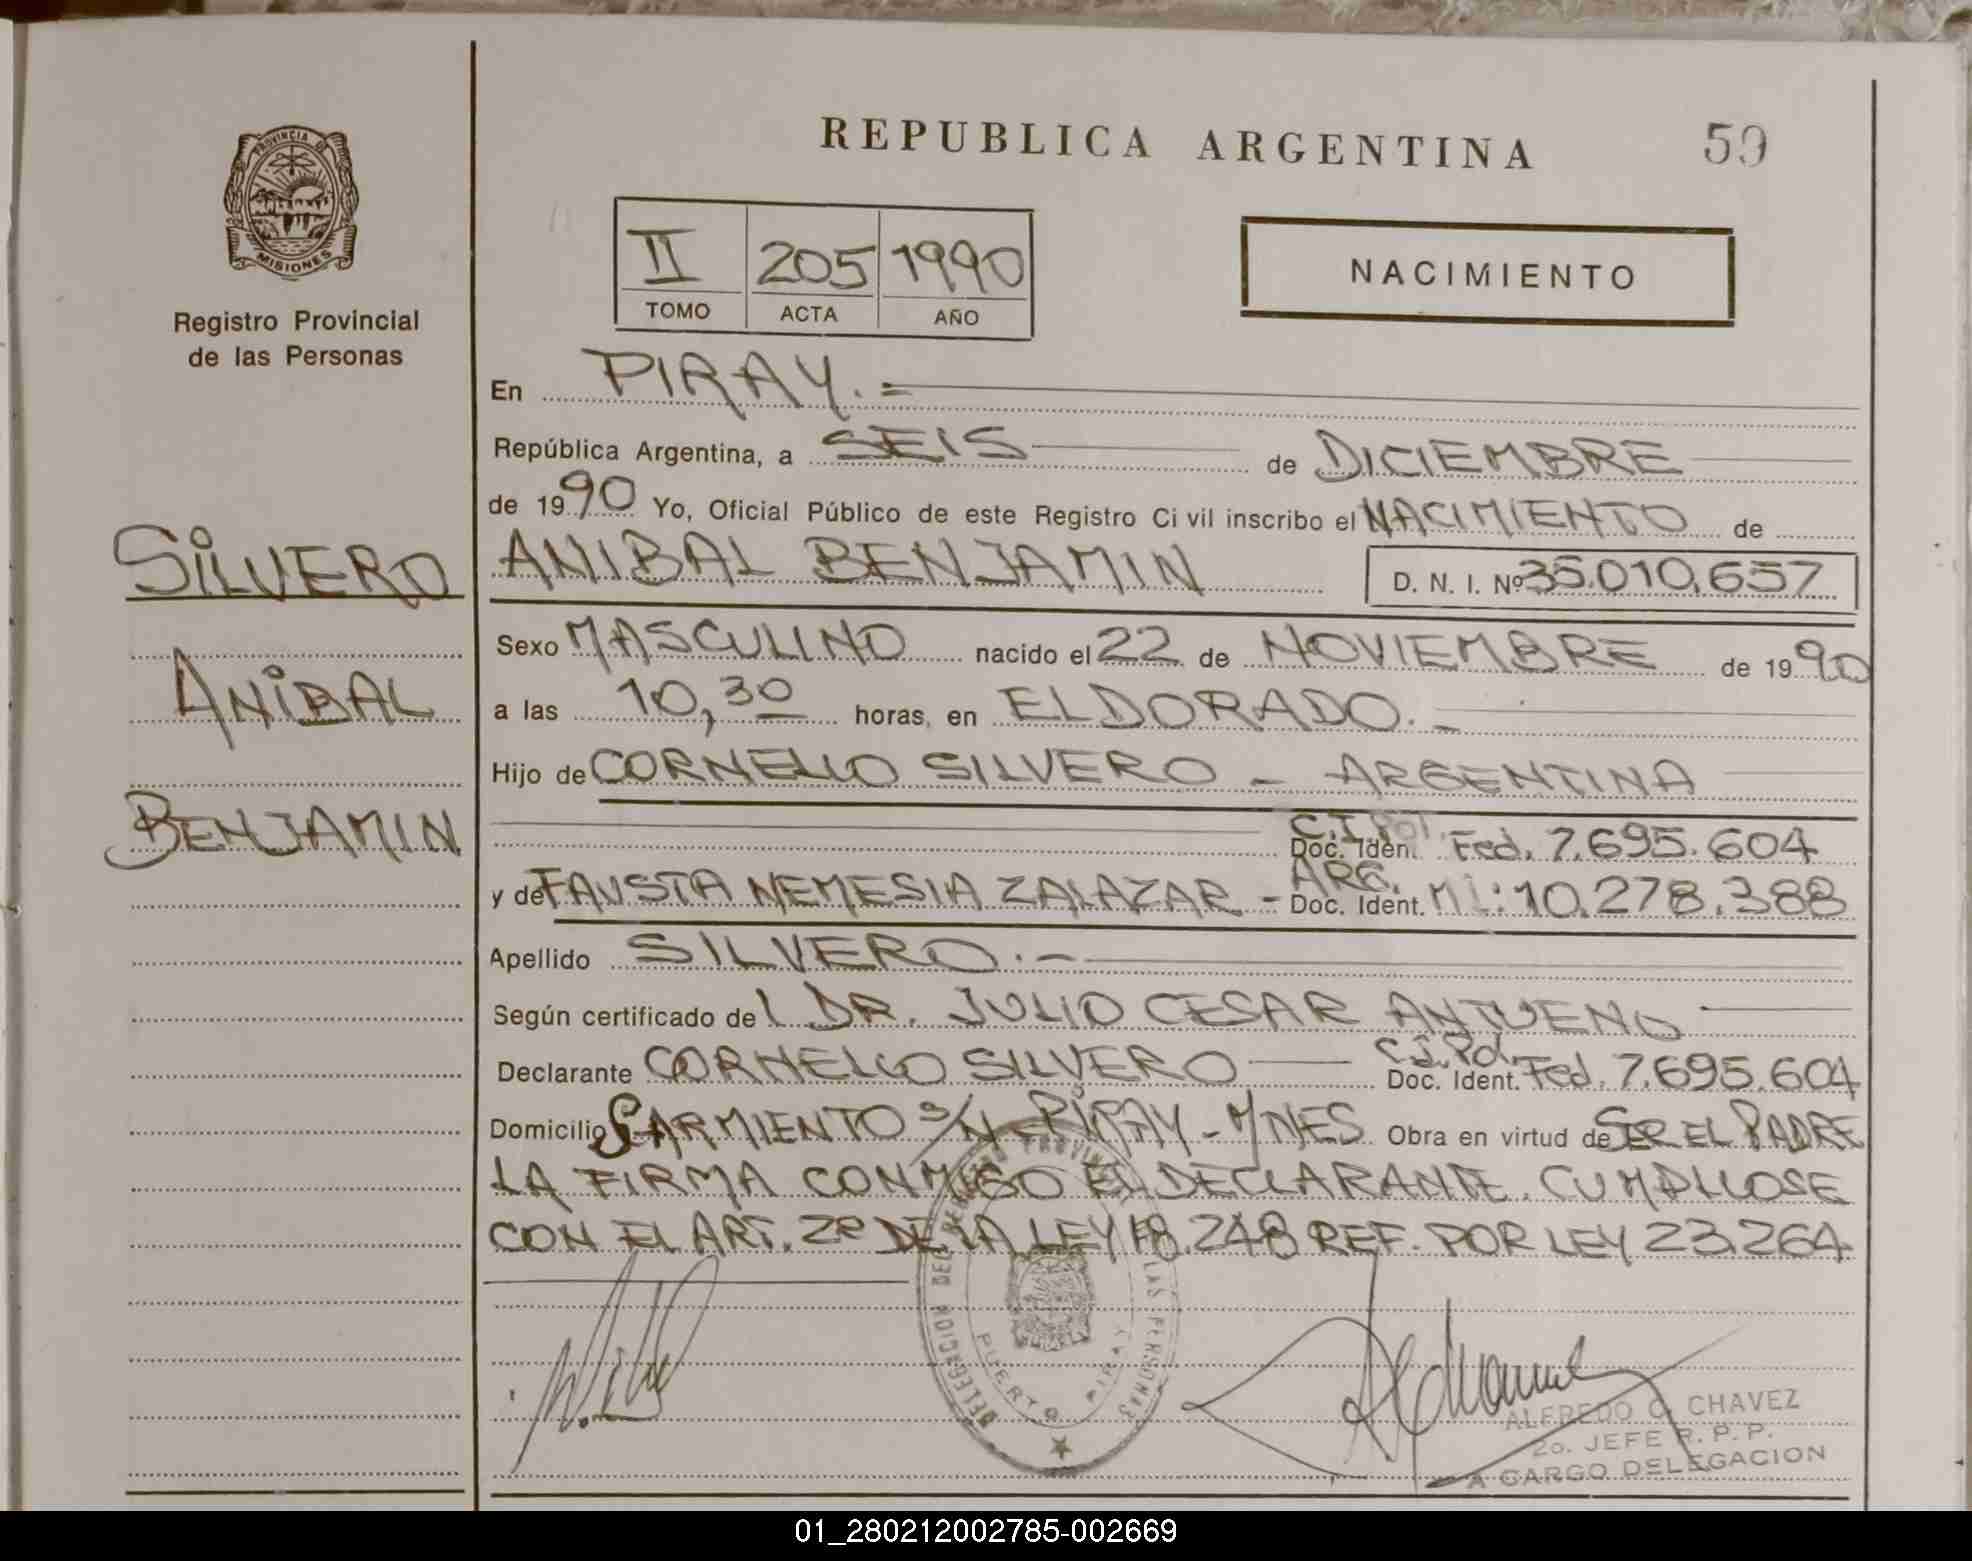 REPUBLICA ARGENTINA
59
PROVINCIA DE
MISIONES
Registro Provincial
de las Personas
II 205 1990
TOMO ACTA AÑO
NACIMIENTO
En PIRAY.=
República Argentina, a SEIS de DICIEMBRE
de 1990 Yo, Oficial Público de este Registro Civil inscribo el NACIMIENTO de
SILVERO
ANIBAL
BENJAMIN
ANIBAL BENJAMIN D. N. I. Nº 35.010.657
Sexo MASCULINO nacido el 22 de NOVIEMBRE de 1990
a las 10,30 horas, en ELDORADO.-
Hijo de CORNELIO SILVERO - ARGENTINA
C.I. Pol.
Doc. Iden. Fed. 7.695.604
ARG.
y de FAUSTA NEMESIA ZALAZAR - Doc. Ident. MI: 10.278.388
Apellido SILVERO.-
Según certificado del DR. JULIO CESAR
C.I. Pol.
Declarante CORNELIO SILVERO Doc. Ident. Fed. 7.695.604
Domicilio SARMIENTO S/N - PIRAY - MNES Obra en virtud de SER EL PADRE
LA FIRMA CONMIGO EL DECLARANTE. CUMPLIOSE
CON EL ART. 2º DE LA LEY 18.248 REF. POR LEY 23.264
DELEGACION DEL REGISTRO PROVINCIAL DE LAS PERSONAS
PUERTO PIRAY
ALFREDO C. CHAVEZ
2o. JEFE R. P. P.
A CARGO DELEGACION
01_280212002785-002669